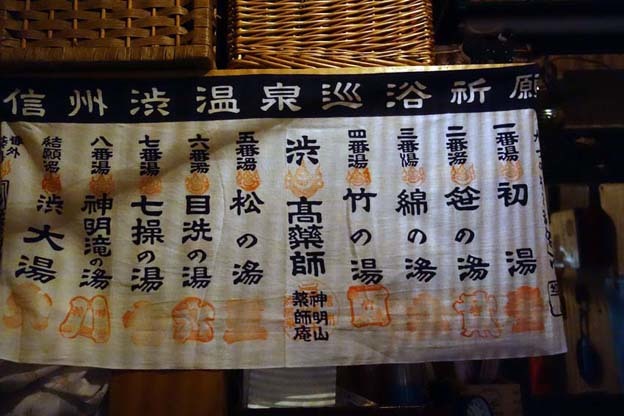 信州渋温泉巡浴祈願
一番湯 初湯
二番湯 笹の湯
三番湯 綿の湯
四番湯 竹の湯
渋高薬師
神明山
薬師庵
五番湯 松の湯
六番湯 目洗の湯
七番湯 七操の湯
八番湯 神明滝の湯
結願湯 渋大湯
番外